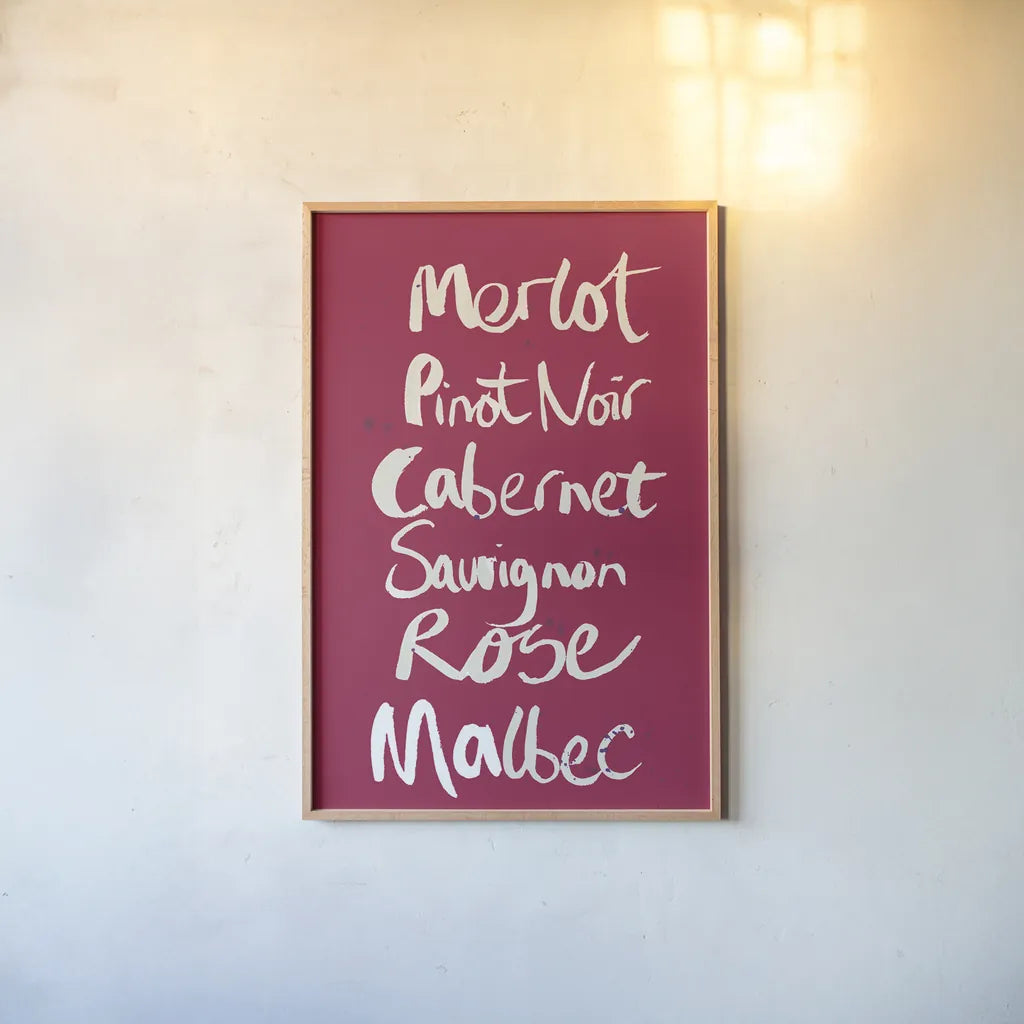 Merlot
Pinot Noir
Cabernet
Sauvignon
Rose
Malbec